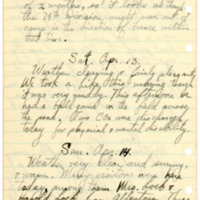 of 2 months, so it looks as though
the 79th Division might move out of
camp in the direction of France within
that time.
Sat. Apr. 13.
Weather clearing & fairly pleasant.
We took a hike this morning though
it was very muddy. This afternoon we
had a ball game in the field across
the road. Two Cos were discharged
today for physical & mental disability.
Sun. Apr. 14.
Weather very clear and sunny,
& warm. Many visitors were here
today, among them Meg. Loeb &